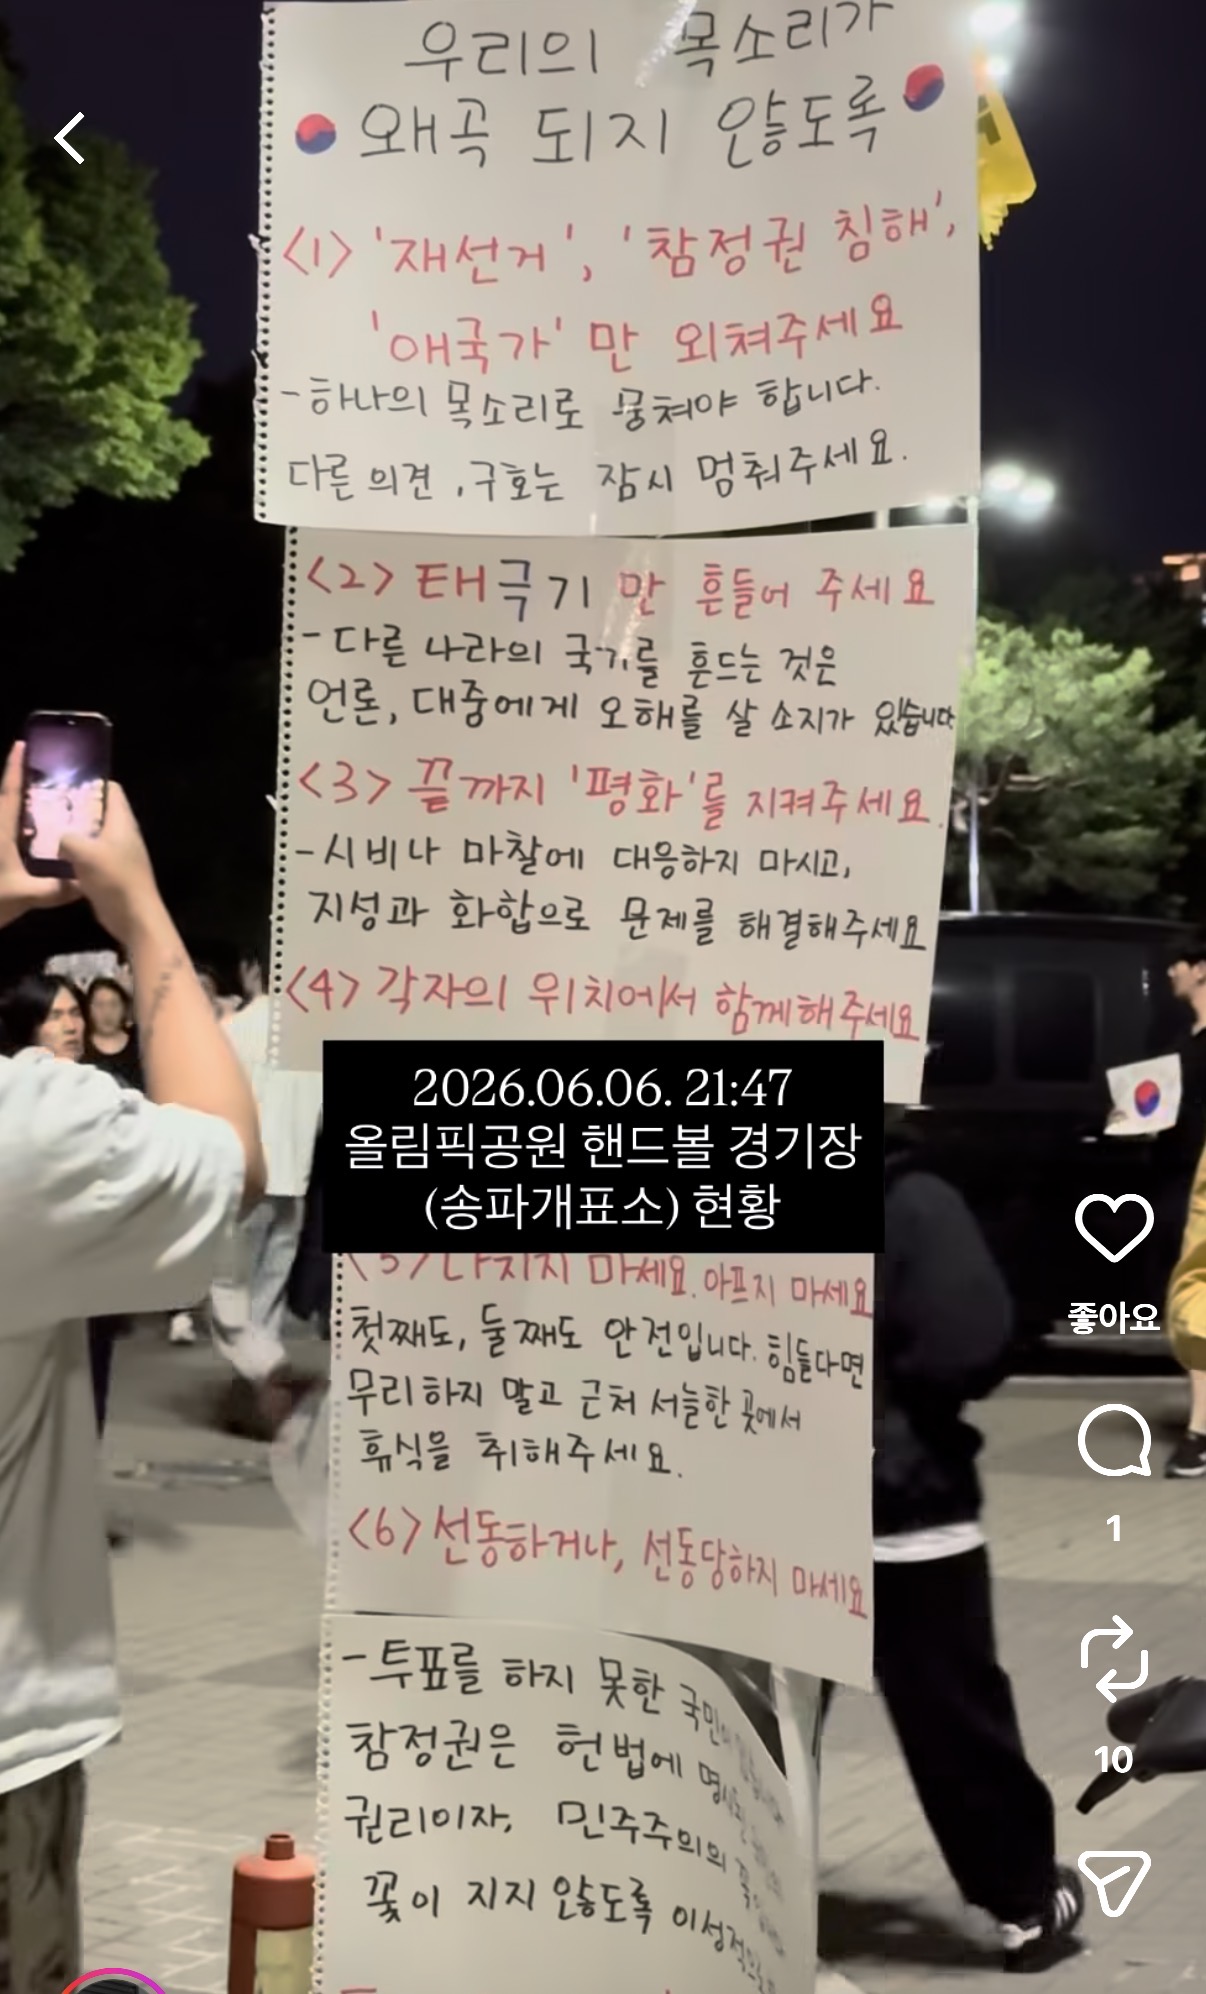 우리의 목소리가
왜곡 되지 않도록
<1> '재선거', '참정권 침해',
'애국가' 만 외쳐주세요
- 하나의 목소리로 뭉쳐야 합니다.
다른 의견, 구호는 잠시 멈춰주세요.
<2> 태극기 만 흔들어 주세요
- 다른 나라의 국기를 흔드는 것은
언론, 대중에게 오해를 살 소지가 있습니다
<3> 끝까지 '평화'를 지켜주세요.
- 시비나 마찰에 대응하지 마시고,
지성과 화합으로 문제를 해결해주세요
<4> 각자의 위치에서 함께해주세요
2026.06.06. 21:47
올림픽공원 핸드볼 경기장
(송파개표소) 현황
<5> 다치지 마세요. 아프지 마세요
첫째도, 둘째도 안전입니다. 힘들다면
무리하지 말고 근처 서늘한 곳에서
휴식을 취해주세요.
<6> 선동하거나, 선동당하지 마세요
- 투표를 하지 못한
참정권은 헌법에
권리이자, 민주주의의
꽃이 지지 않도록
좋아요
1
10